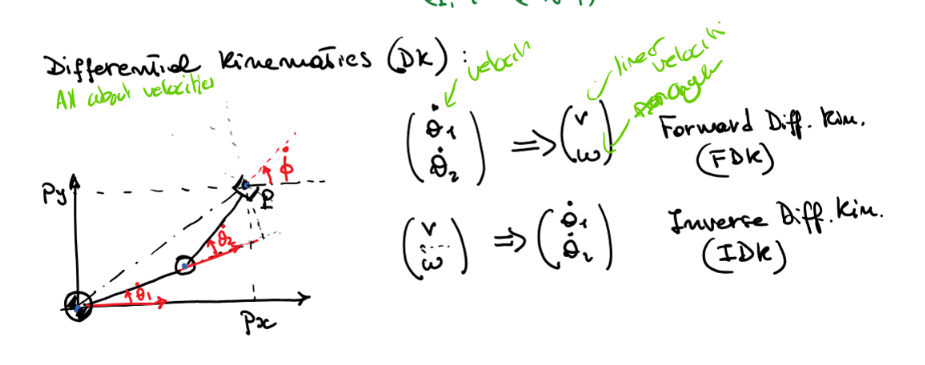 Differential Kinematics (DK) :
All about velocities
velociti
linear
velociti
angular
(θ̇1 θ̇2) ⇒ (v ω)
Forward Diff. Kin.
(FDK)
(v ω) ⇒ (θ̇1 θ̇2)
Inverse Diff. Kin.
(IDK)
Py
ϕ̇
P
θ̇2
θ̇1
Px